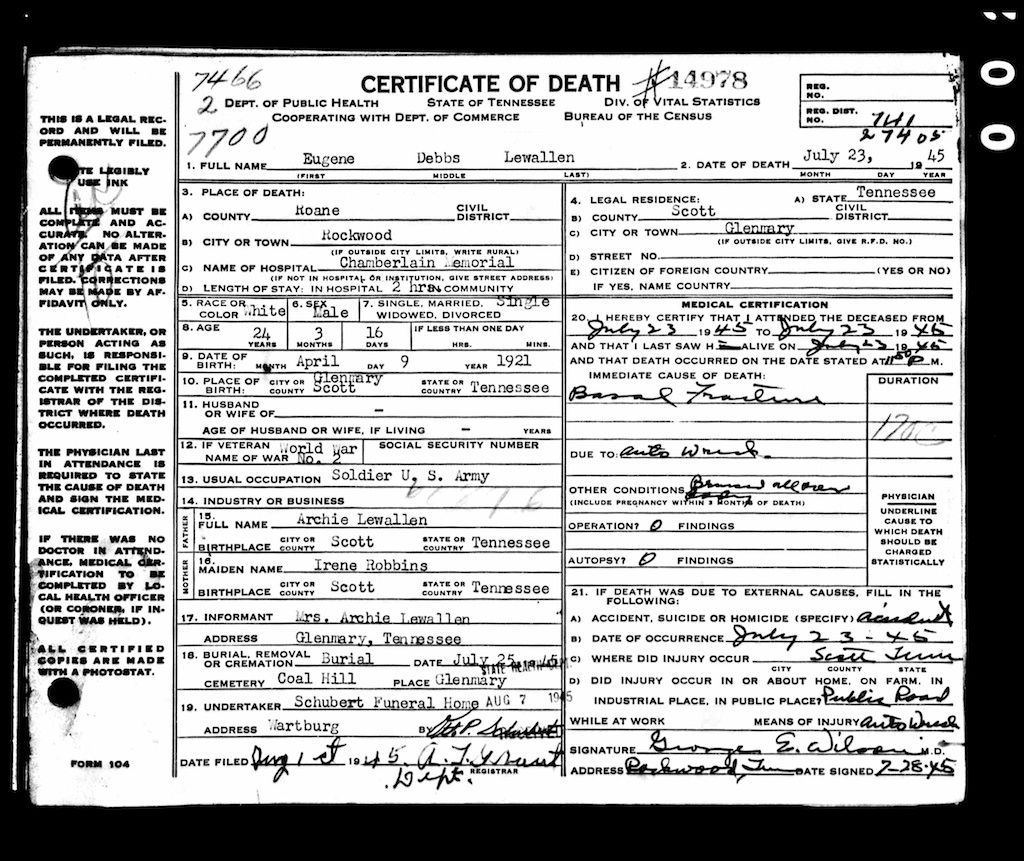 7466
CERTIFICATE OF DEATH # 14978
2 DEPT. OF PUBLIC HEALTH STATE OF TENNESSEE DIV. OF VITAL STATISTICS
COOPERATING WITH DEPT. OF COMMERCE BUREAU OF THE CENSUS
7700
REG. NO.
REG. DIST. NO. 741
27405
THIS IS A LEGAL REC-
ORD AND WILL BE
PERMANENTLY FILED.
LEGIBLY
USE INK
ALL ITEMS MUST BE
COMPLETE AND AC-
CURATE. NO ALTER-
ATION CAN BE MADE
OF ANY DATA AFTER
CERTIFICATE IS
FILED. CORRECTIONS
MAY BE MADE BY AF-
FIDAVIT ONLY.
THE UNDERTAKER, OR
PERSON ACTING AS
SUCH, IS RESPONSI-
BLE FOR FILING THE
COMPLETED CERTIFI-
CATE WITH THE REG-
ISTRAR OF THE DIS-
TRICT WHERE DEATH
OCCURRED.
THE PHYSICIAN LAST
IN ATTENDANCE IS
REQUIRED TO STATE
THE CAUSE OF DEATH
AND SIGN THE MED-
ICAL CERTIFICATION.
IF THERE WAS NO
DOCTOR IN ATTEND-
ANCE, MEDICAL CER-
TIFICATION TO BE
COMPLETED BY LO-
CAL HEALTH OFFICER
(OR CORONER, IF IN-
QUEST WAS HELD).
ALL CERTIFIED
COPIES ARE MADE
WITH A PHOTOSTAT.
FORM 104
1. FULL NAME Eugene Debbs Lewallen 2. DATE OF DEATH July 23, 1945
(FIRST) MIDDLE LAST) MONTH DAY YEAR
3. PLACE OF DEATH:
A) COUNTY Roane CIVIL DISTRICT
B) CITY OR TOWN Rockwood
(IF OUTSIDE CITY LIMITS, WRITE RURAL)
C) NAME OF HOSPITAL Chamberlain Memorial
(IF NOT IN HOSPITAL OR INSTITUTION, GIVE STREET ADDRESS)
D) LENGTH OF STAY: IN HOSPITAL 2 hrs. IN COMMUNITY
5. RACE OR COLOR White 6. SEX Male 7. SINGLE, MARRIED, WIDOWED, DIVORCED Single
8. AGE 24 3 16 IF LESS THAN ONE DAY
YEARS MONTHS DAYS HRS. MINS.
9. DATE OF BIRTH: April 9 1921
MONTH DAY YEAR
10. PLACE OF BIRTH: CITY OR COUNTY Glenmary Scott STATE OR COUNTRY Tennessee
11. HUSBAND OR WIFE OF -
AGE OF HUSBAND OR WIFE, IF LIVING - YEARS
12. IF VETERAN NAME OF WAR World War No. 2 SOCIAL SECURITY NUMBER
13. USUAL OCCUPATION Soldier U. S. Army
14. INDUSTRY OR BUSINESS
FATHER
15. FULL NAME Archie Lewallen
BIRTHPLACE CITY OR COUNTY Scott STATE OR COUNTRY Tennessee
MOTHER
16. MAIDEN NAME Irene Robbins
BIRTHPLACE CITY OR COUNTY Scott STATE OR COUNTRY Tennessee
17. INFORMANT Mrs. Archie Lewallen
ADDRESS Glenmary, Tennessee
18. BURIAL, REMOVAL OR CREMATION Burial DATE July 25, 1945
CEMETERY Coal Hill PLACE Glenmary
19. UNDERTAKER Schubert Funeral Home AUG 7 1945
ADDRESS Wartburg BY
DATE FILED Aug 1st 1945.
REGISTRAR
Dept.
4. LEGAL RESIDENCE: A) STATE Tennessee
B) COUNTY Scott CIVIL DISTRICT
C) CITY OR TOWN Glenmary
(IF OUTSIDE CITY LIMITS, GIVE R.F.D. NO.)
D) STREET NO.
E) CITIZEN OF FOREIGN COUNTRY (YES OR NO)
IF YES, NAME COUNTRY
MEDICAL CERTIFICATION
20. I HEREBY CERTIFY THAT I ATTENDED THE DECEASED FROM
July 23 1945 TO July 23 1945
AND THAT I LAST SAW H ALIVE ON July 23 1945
AND THAT DEATH OCCURRED ON THE DATE STATED AT P M.
IMMEDIATE CAUSE OF DEATH: DURATION
Basal Fracture
170c
DUE TO: Auto Wreck.
OTHER CONDITIONS Bruised all over body
(INCLUDE PREGNANCY WITHIN 3 MONTHS OF DEATH)
OPERATION? 0 FINDINGS
AUTOPSY? 0 FINDINGS
PHYSICIAN
UNDERLINE
CAUSE TO
WHICH DEATH
SHOULD BE
CHARGED
STATISTICALLY
21. IF DEATH WAS DUE TO EXTERNAL CAUSES, FILL IN THE
FOLLOWING:
A) ACCIDENT, SUICIDE OR HOMICIDE (SPECIFY) Accident
B) DATE OF OCCURRENCE July 23-45
C) WHERE DID INJURY OCCUR Scott Tenn
CITY COUNTY STATE
D) DID INJURY OCCUR IN OR ABOUT HOME, ON FARM, IN
INDUSTRIAL PLACE, IN PUBLIC PLACE? Public Road
WHILE AT WORK MEANS OF INJURY Auto Wreck
SIGNATURE George E. Wilson M.D.
ADDRESS Rockwood, Tenn DATE SIGNED 7-28-45